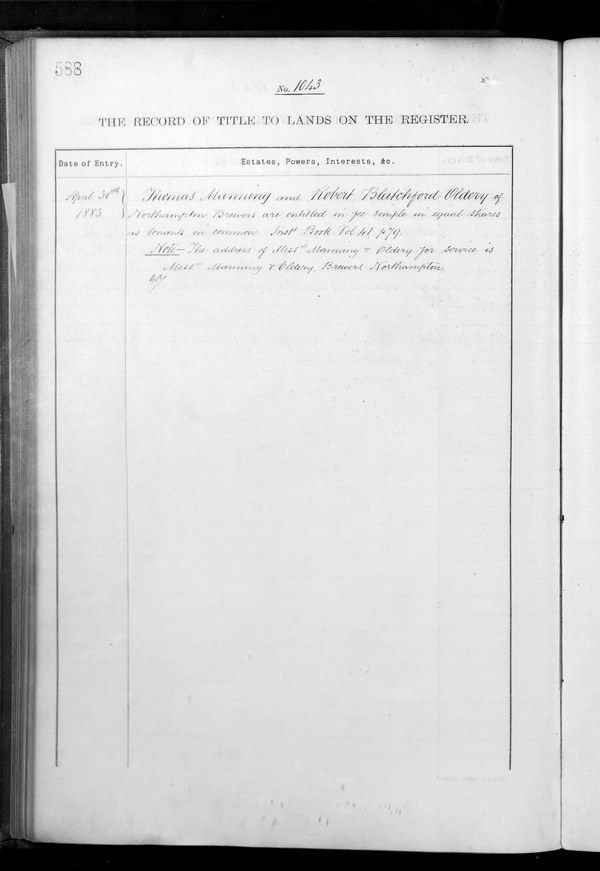 588
No. 1043
THE RECORD OF TITLE TO LANDS ON THE REGISTER.
Date of Entry.
Estates, Powers, Interests, &c.
April 30th 1883
Thomas Manning and Robert Blatchford Oldery of
Northampton Brewers are entitled in fee simple in equal shares
as tenants in common Inst. Book Vol 41 p79.
Note— The address of Messrs Manning & Oldery for service is
Messrs Manning & Oldery Brewers Northampton.